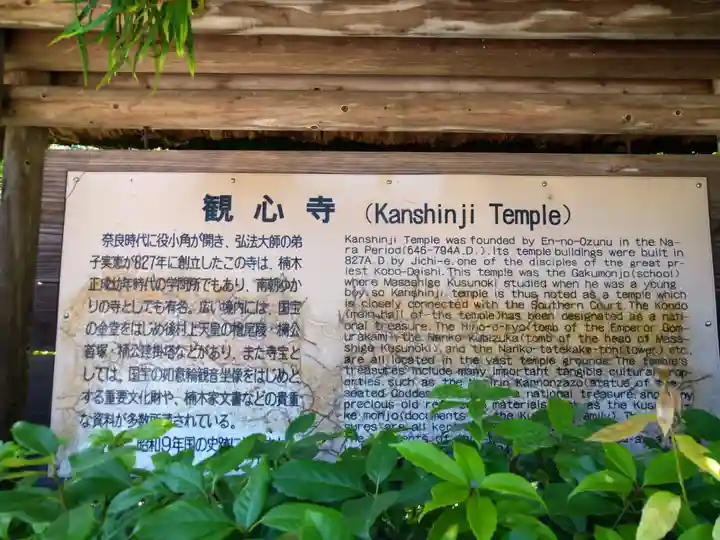 観心寺 (Kanshinji Temple)
奈良時代に役小角が開き、弘法大師の弟
子実恵が827年に創立したこの寺は、楠木
正成幼年時代の学問所でもあり、南朝ゆか
りの寺としても有名。広い境内には、国宝
の金堂をはじめ後村上天皇の桧尾陵・楠公
首塚・楠公建掛塔などがあり、また寺宝と
しては、国宝の如意輪観音坐像をはじめと
する重要文化財や、楠木家文書などの貴重
な資料が多数所蔵されている。
昭和9年国の史跡に
Kanshinji Temple was founded by En-no-Ozunu in the Na-
ra Period(646-794A.D.). Its temple buildings were built in
827A.D.by Jichi-e,one of the disciples of the great pr-
iest Kobo-Daishi.This temple was the Gakumonjo(school)
where Masashige Kusunoki studied when he was a young
boy,so Kanshinji temple is thus noted as a temple which
is closely connected with the Southern Court. The Kondo
(main Hall of the temple)has been designated as a nati-
onal treasure. The Hino-o-ryo(tomb of the Emperor Gom-
urakami), the Nanko Kubizuka(tomb of the head of Masa-
shige Kusunoki), and the Nanko tatekake-toh(tower) etc.
are all located in the vast temple grounds. The temple's
treasures include many important tangible cultural prop-
erties, such as the Kannonzazo(statue of
seated Goddess national treasure, and
precious old materials as the Kusu
ke monjo(documents of the Kusu family
sures are all kept
The